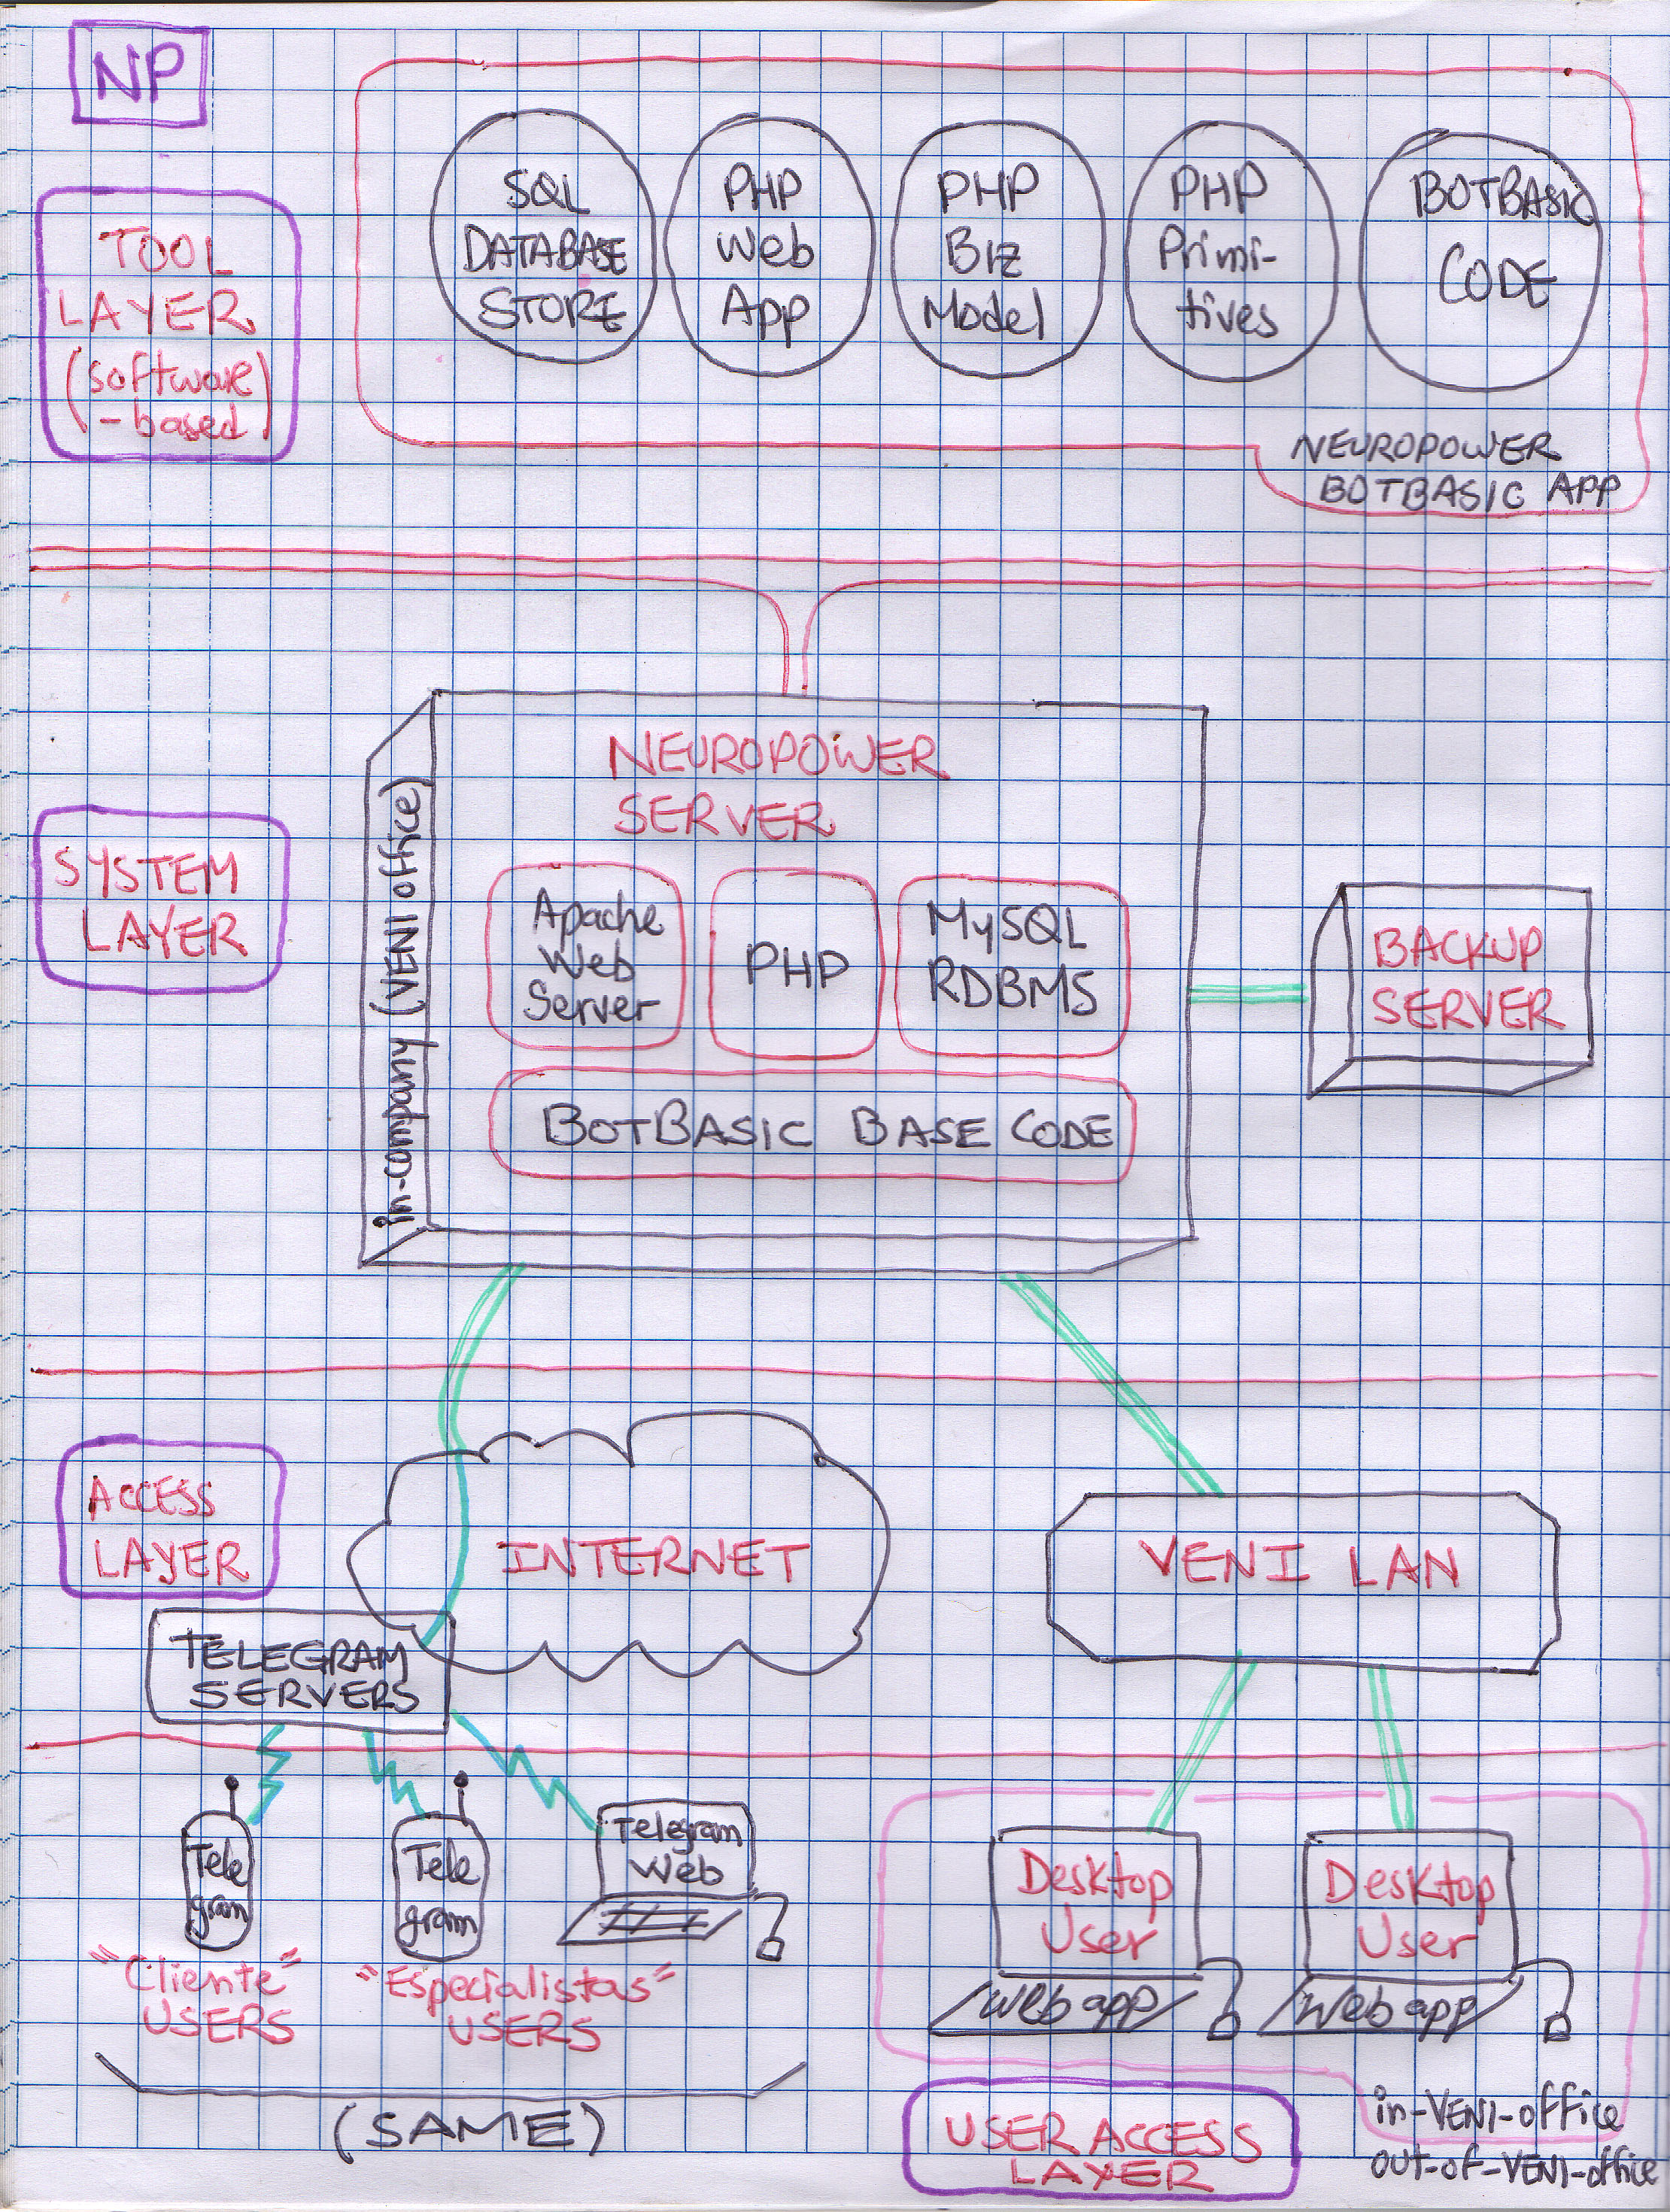 NP
TOOL
LAYER
(software
-based)
SQL
DATABASE
STORE
PHP
Web
App
PHP
Biz
Model
PHP
Primi-
tives
BOTBASIC
CODE
NEUROPOWER
BOTBASIC APP
SYSTEM
LAYER
in-company (VENI office)
NEUROPOWER
SERVER
Apache
Web
Server
PHP
MySQL
RDBMS
BOTBASIC BASE CODE
BACKUP
SERVER
ACCESS
LAYER
INTERNET
VENI LAN
TELEGRAM
SERVERS
Tele
gram
"Cliente"
USERS
Tele
gram
"Especialistas"
USERS
Telegram
Web
(SAME)
Desktop
User
Web app
Desktop
User
Web app
USER ACCESS
LAYER
in-VENI-office
out-of-VENI-office